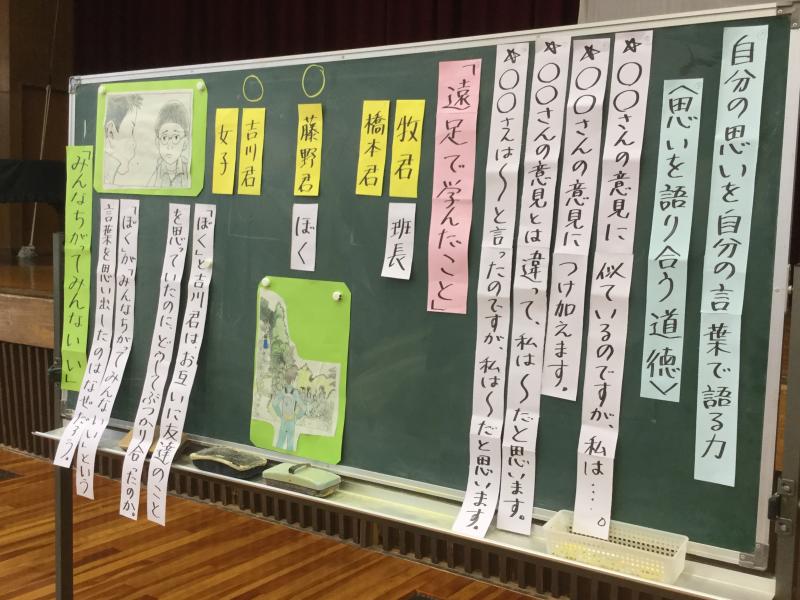 自分の思いを自分の言葉で語る力
〈思いを語り合う道徳〉
☆○○さんの意見に似ているのですが、私は‥‥。
☆○○さんの意見につけ加えます。
☆○○さんの意見とは違って、私は〜だと思います。
☆○○さんは〜と言ったのですが、私は〜だと思います。
「遠足で学んだこと」
牧君
橋本君
班長
藤野君
ぼく
吉川君
女子
「ぼく」と吉川君はお互いに友達のこと
を思っていたのにどうしてぶつかり合ったのか。
「ぼく」が「みんなちがってみんないい」という
言葉を思い出したのはなぜだろう。
「みんなちがってみんないい」